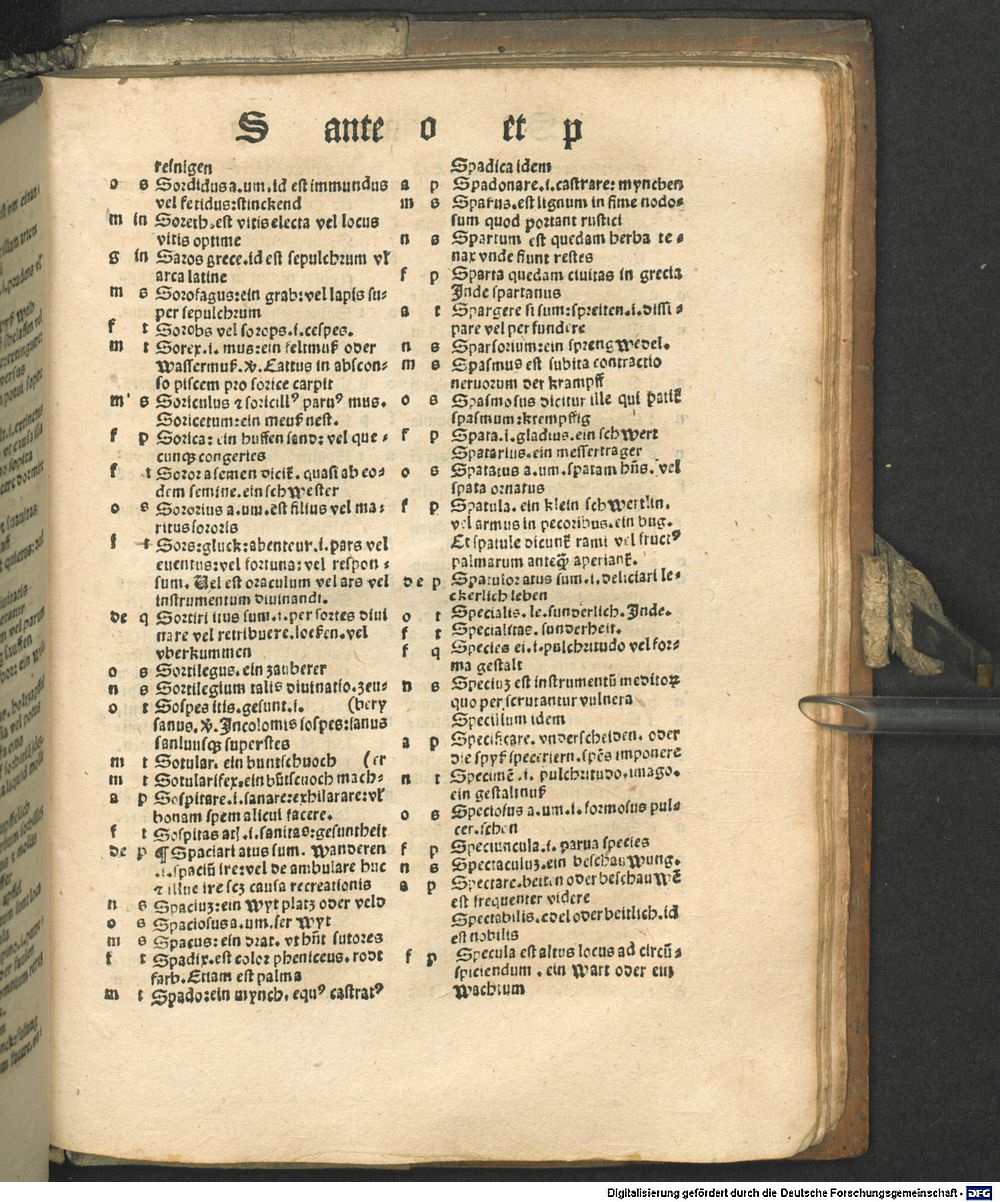 S ante o et p
reinigen
o s Sordidus a.um.id est immundus
vel fetidus:stinckend
m in Soreth.est vitis electa vel locus
vitis optime
g in Saros grece.id est sepulchrum vł
arca latine
m s Sorofagus:ein grab:vel lapis su⸗
per sepulchrum
f t Sorobs vel sorops.i.cespes.
m t Sorex.i. mus:ein feltmuß oder
Wassermuß.v̇. Cattus in abscon⸗
so piscem pro sorice carpit
m s Soriculus ⁊ soricillꝰ paruꝰ mus.
Soricetum:ein meuß nest.
f p Sorica: ein huffen sand: vel que⸗
cunqꝫ congeries
f t Soror a semen dicit᷑. quasi ab eo⸗
dem semine.ein schwester
o s Sororius a.um.est filius vel ma⸗
ritus sororis
f t Sors:gluck:abenteur.i.pars vel
euentus:vel fortuna:vel respon⸗
sum. Uel est oraculum vel ars vel
instrumentum diuinandi.
de q Sortiri itus sum.i.per sortes diui
nare vel retribuere.loeßen.vel
vberkummen
o s Sortilegus.ein zauberer
n s Sortilegium talis diuinatio.zeu⸗
o t Sospes itis.gesunt.i. (bery
sanus.v̇. Incolomis sospes:sanus
sanluusqꝫ superstes
m t Sotular. ein buntschuoch (er
m t Sotularifex.ein bu̅tscuoch mach⸗
a p Sospitare.i.sanare:exhilarare:vł
bonam spem alicui facere.
f t Sospitas atꝭ.i.sanitas:gesuntheit
de p ¶ Spaciari atus sum. wanderen
.i.spaciu̅ ire:vel de ambulare huc
⁊ illuc ire scꝫ causa recreationis
n s Spaciuꝫ:ein wyt platz oder veld
o s Spaciosus a.um.ser wyt
m s Spacus: ein drat. vt hn̅t sutores
f t Spadix.est color pheniceus. rodt
farb.Etiam est palma
m t Spado:ein mynch. equꝰ castratꝰ
Spadica idem
a p Spadonare.i.castrare: mynchen
m s Sparus.est lignum in fime nodo⸗
sum quod portant rustici
n s Spartum est quedam herba te⸗
nax vnde fiunt restes
f p Sparta quedam ciuitas in grecia
Inde spartanus
a t Spargere si sum:spreiten.i.dissi⸗
pare vel perfundere
n s Sparsorium:ein spreng wedel.
m s Spasmus est subita contractio
neruorum der krampff
o s Spasmosus dicitur ille qui patit᷑
spasmum:krempffig
f p Spata.i.gladius.ein schwert
Spatarius.ein messertrager
o s Spatatus a.um.spatam hn̅s. vel
spata ornatus
f p Spatula. ein klein schwertlin.
vel armus in pecoribus.ein bug.
Et spatule dicunt᷑ rami vel fructꝰ
palmarum anteq̅ꝫ aperiant᷑.
de p Spatulor atus sum.i.deliciari le⸗
ckerlich leben
o t Specialis.le.sunderlich. Inde.
f t Specialitas. sunderheit.
f q Species ei.i.pulchritudo vel for⸗
ma gestalt
n s Speciuꝫ est instrumentu̅ meditoꝝ
quo perscrutantur vulnera
Specillum idem
a p Specificare. vnderscheiden. oder
die spyß speceriern.spe̅s imponere
n t Specime̅.i. pulchritudo.imago.
ein gestaltnuß
o s Speciosus a.um.i.formosus pul⸗
cer.schen
f p Speciuncula.i. parua species
n s Spectaculuꝫ.ein beschauwung.
a p Spectare.beiten oder beschauwe̅
est frequenter videre
Spectabilis.edel oder beitlich.id
est nobilis
f p Specula est altus locus ad circu̅⸗
spiciendum . ein wart oder ein
wachturn
Digitalisierung gefördert durch die Deutsche Forschungsgemeinschaft - DFG